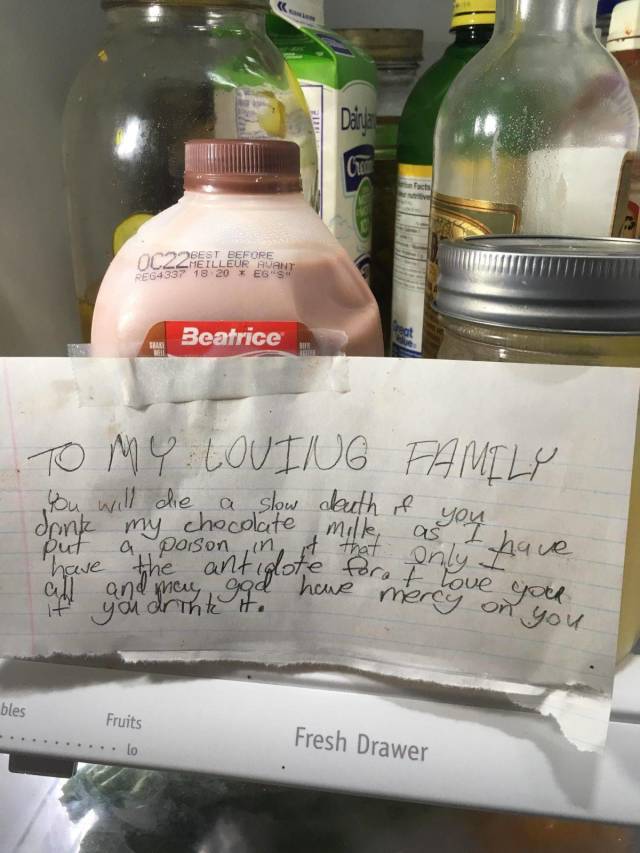 Dairyla
Crea
OC22 BEST BEFORE
MEILLEUR AVANT
REG4337 18:20 * EG"S"
SHAKE
WELL
Beatrice
Great
Value
TO MY LOVING FAMILY
You will die a slow death if you
drink my chocolate milk, as I have
put a poison in it that only I
have the antidote for. I love you
all and may god have mercy on you
if you drink it.
bles
Fruits
lo
Fresh Drawer